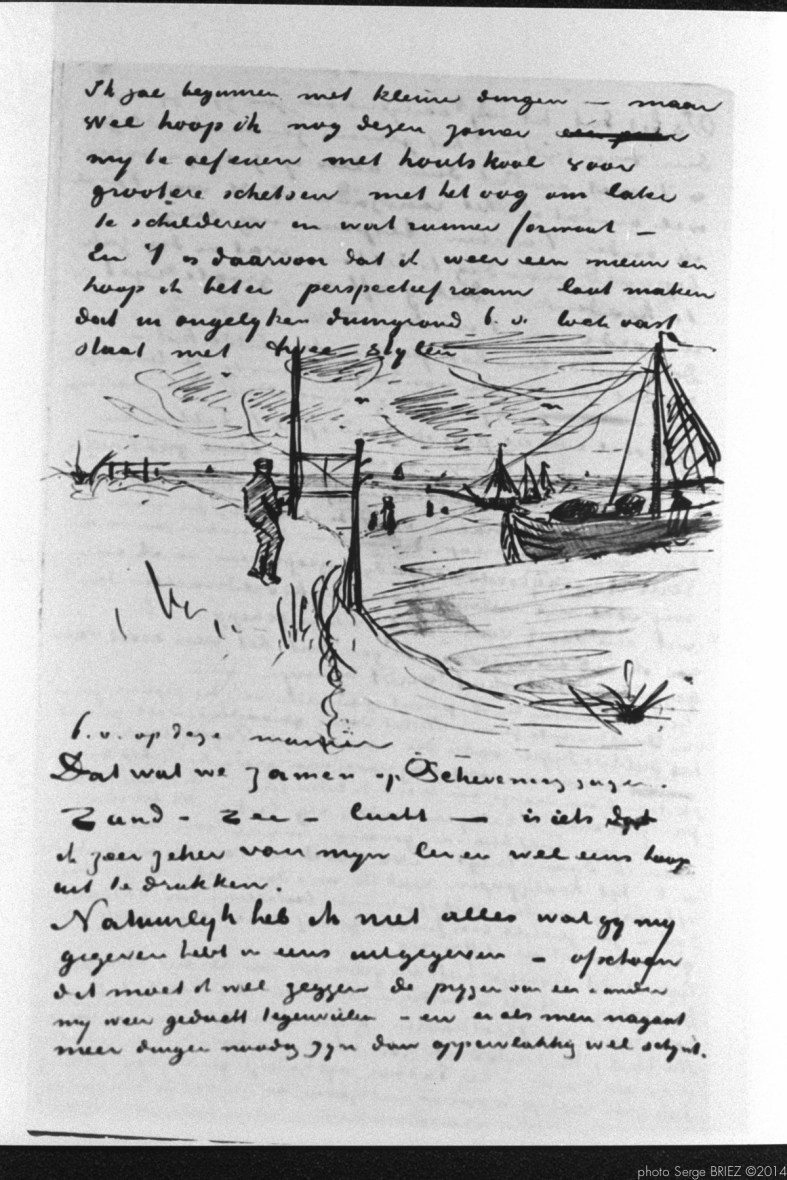 Ik zal beginnen met kleine dingen – maar
wel hoop ik nog dezen zomer
my te oefenen met houtskool voor
grootere schetsen met het oog om later
te schilderen in wat ruimer formaat –
En 't is daarvoor dat ik weer een nieuw en
hoop ik beter perspectiefraam laat maken
dat in ongelyken duingrond b.v. toch vast
staat met twee stylen
b.v. op deze manier
Dat wat we zamen op Schevening zagen.
Zand – Zee – lucht – is iets dat
ik zeer zeker van myn leven wel eens hoop
uit te drukken.
Natuurlyk heb ik niet alles wat gy my
gegeven hebt in eens uitgegeven – ofschoon
dit moet ik wel zeggen de pryzen van een & ander
my weer geducht tegenvielen – en er als men nagaat
meer dingen noodig zyn dan oppervlakkig wel schynt.
photo Serge BRIEZ ©2014